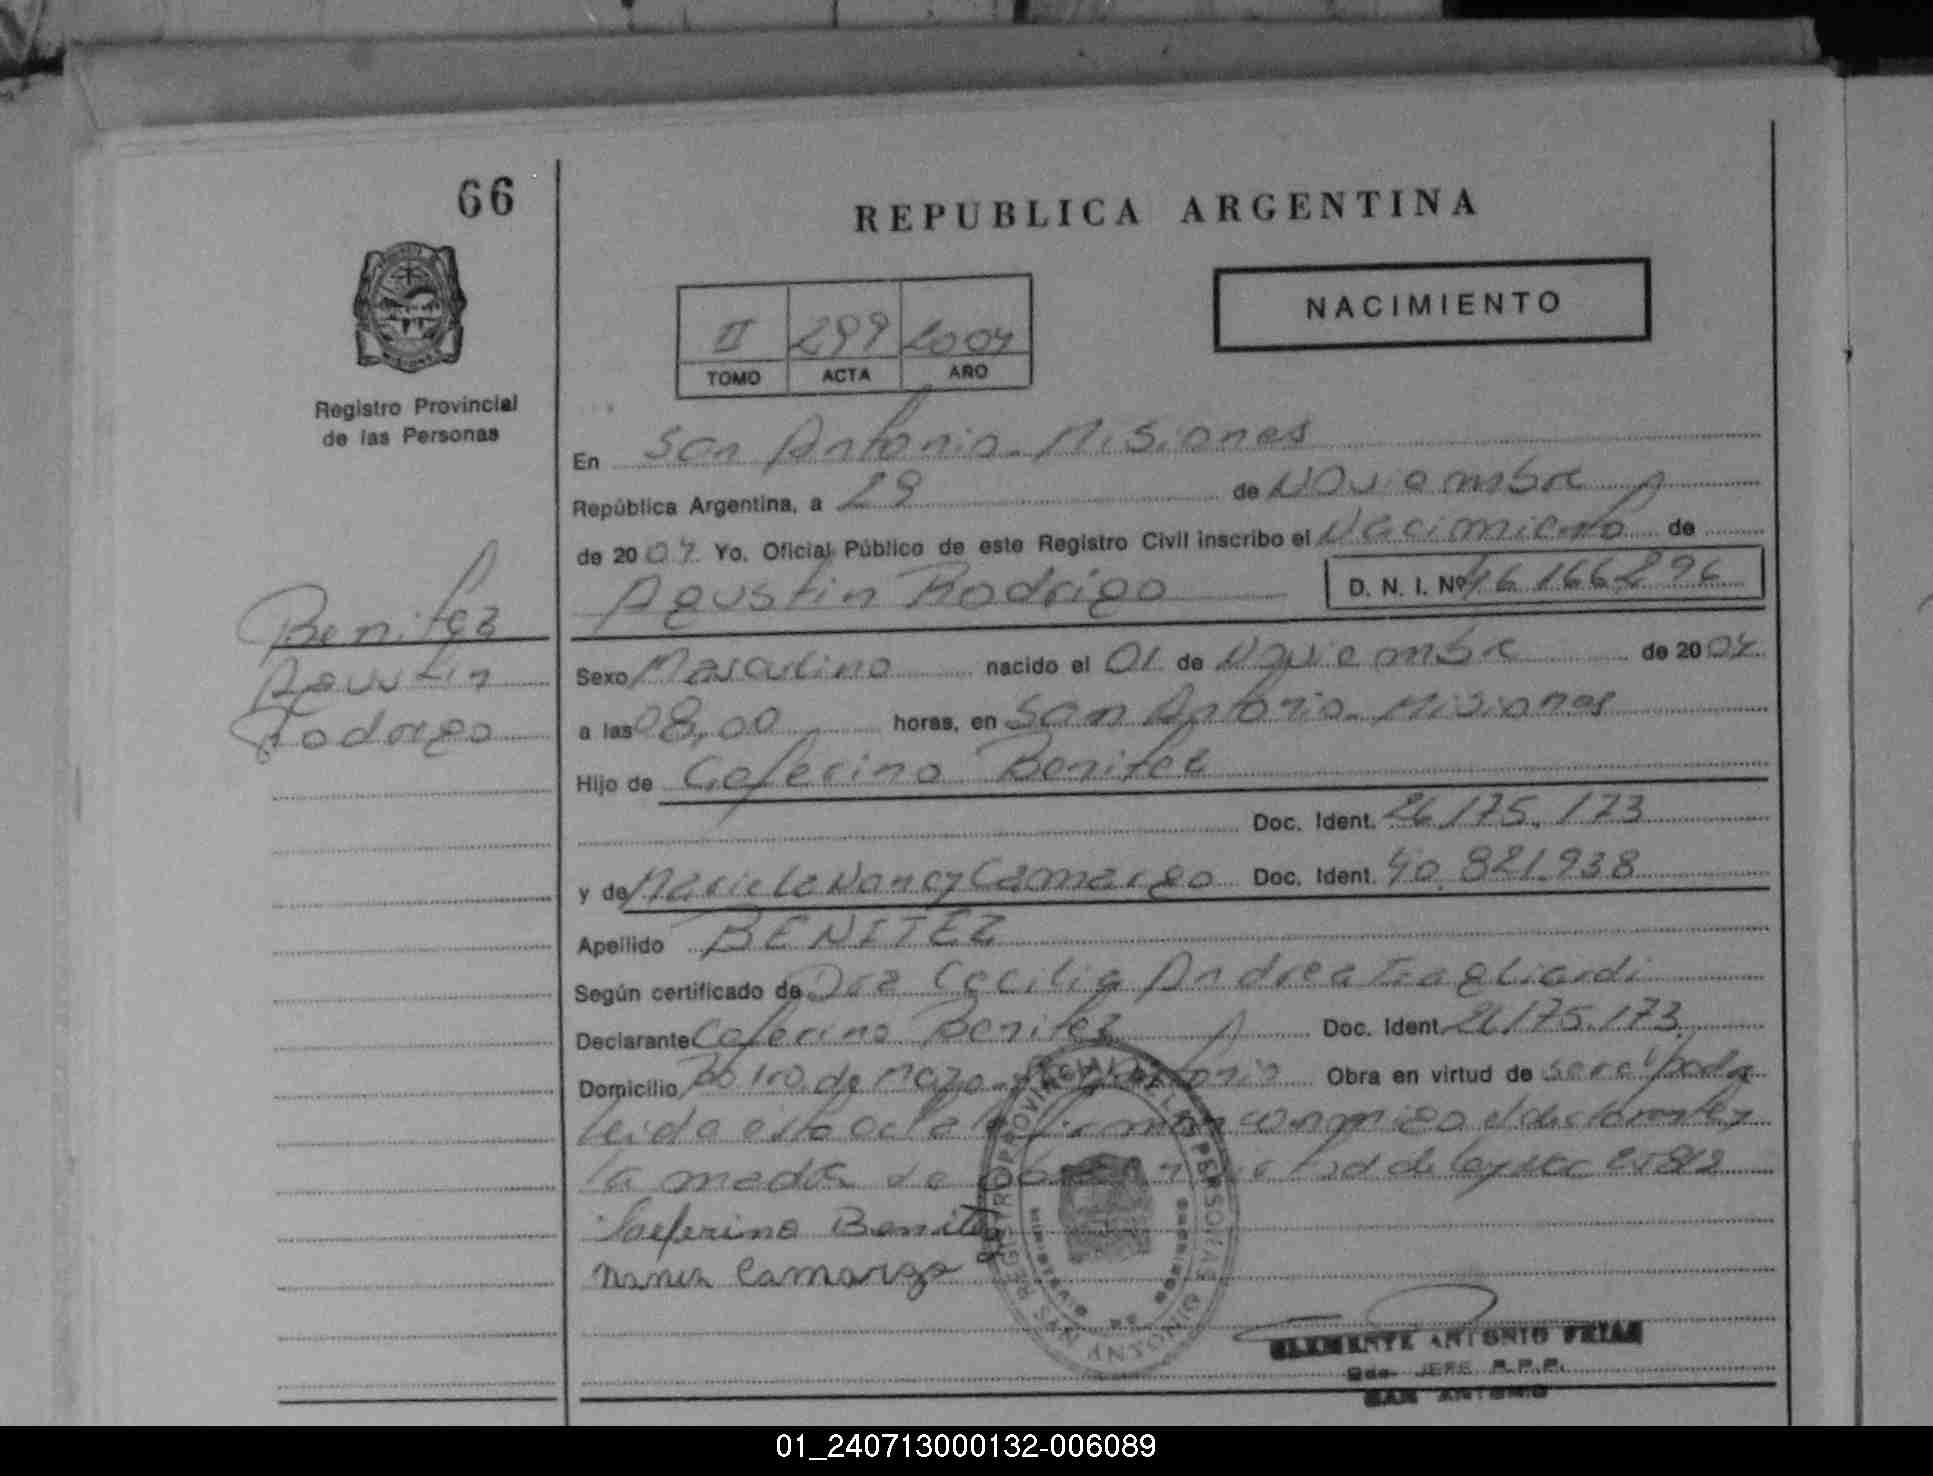 66
REPUBLICA ARGENTINA
NACIMIENTO
II 299 2004
TOMO ACTA AÑO
Registro Provincial
de las Personas
En San Antonio - Misiones
República Argentina, a 29 de Noviembre
de 2004 Yo. Oficial Público de este Registro Civil inscribo el Nacimiento de
Agustin Rodrigo D. N. I. Nº 46.166.296
Benitez
Agustin
Rodrigo
Sexo Masculino nacido el 01 de Noviembre de 2004
a las 08,00 horas, en San Antonio - Misiones
Hijo de Ceferino Benitez
Doc. Ident. 26.175.173
y de Mariela Nancy Camargo Doc. Ident. 40.821.938
Apellido BENITEZ
Según certificado de Dra Cecilia Andrea Tragliardi
Declarante Ceferino Benitez Doc. Ident. 26.175.173
Domicilio Bo 1ro de Mayo - San Antonio Obra en virtud de
leida esta acta la firman conmigo el declarante y
la madre de ley
Seferino Benitez
Nancy Camargo
REGISTRO PROVINCIAL DE LAS PERSONAS
MINISTERIO DE GOBIERNO
CLEMENTE ANTONIO FRIAS
JEFE R.P.P.
SAN ANTONIO
01_240713000132-006089